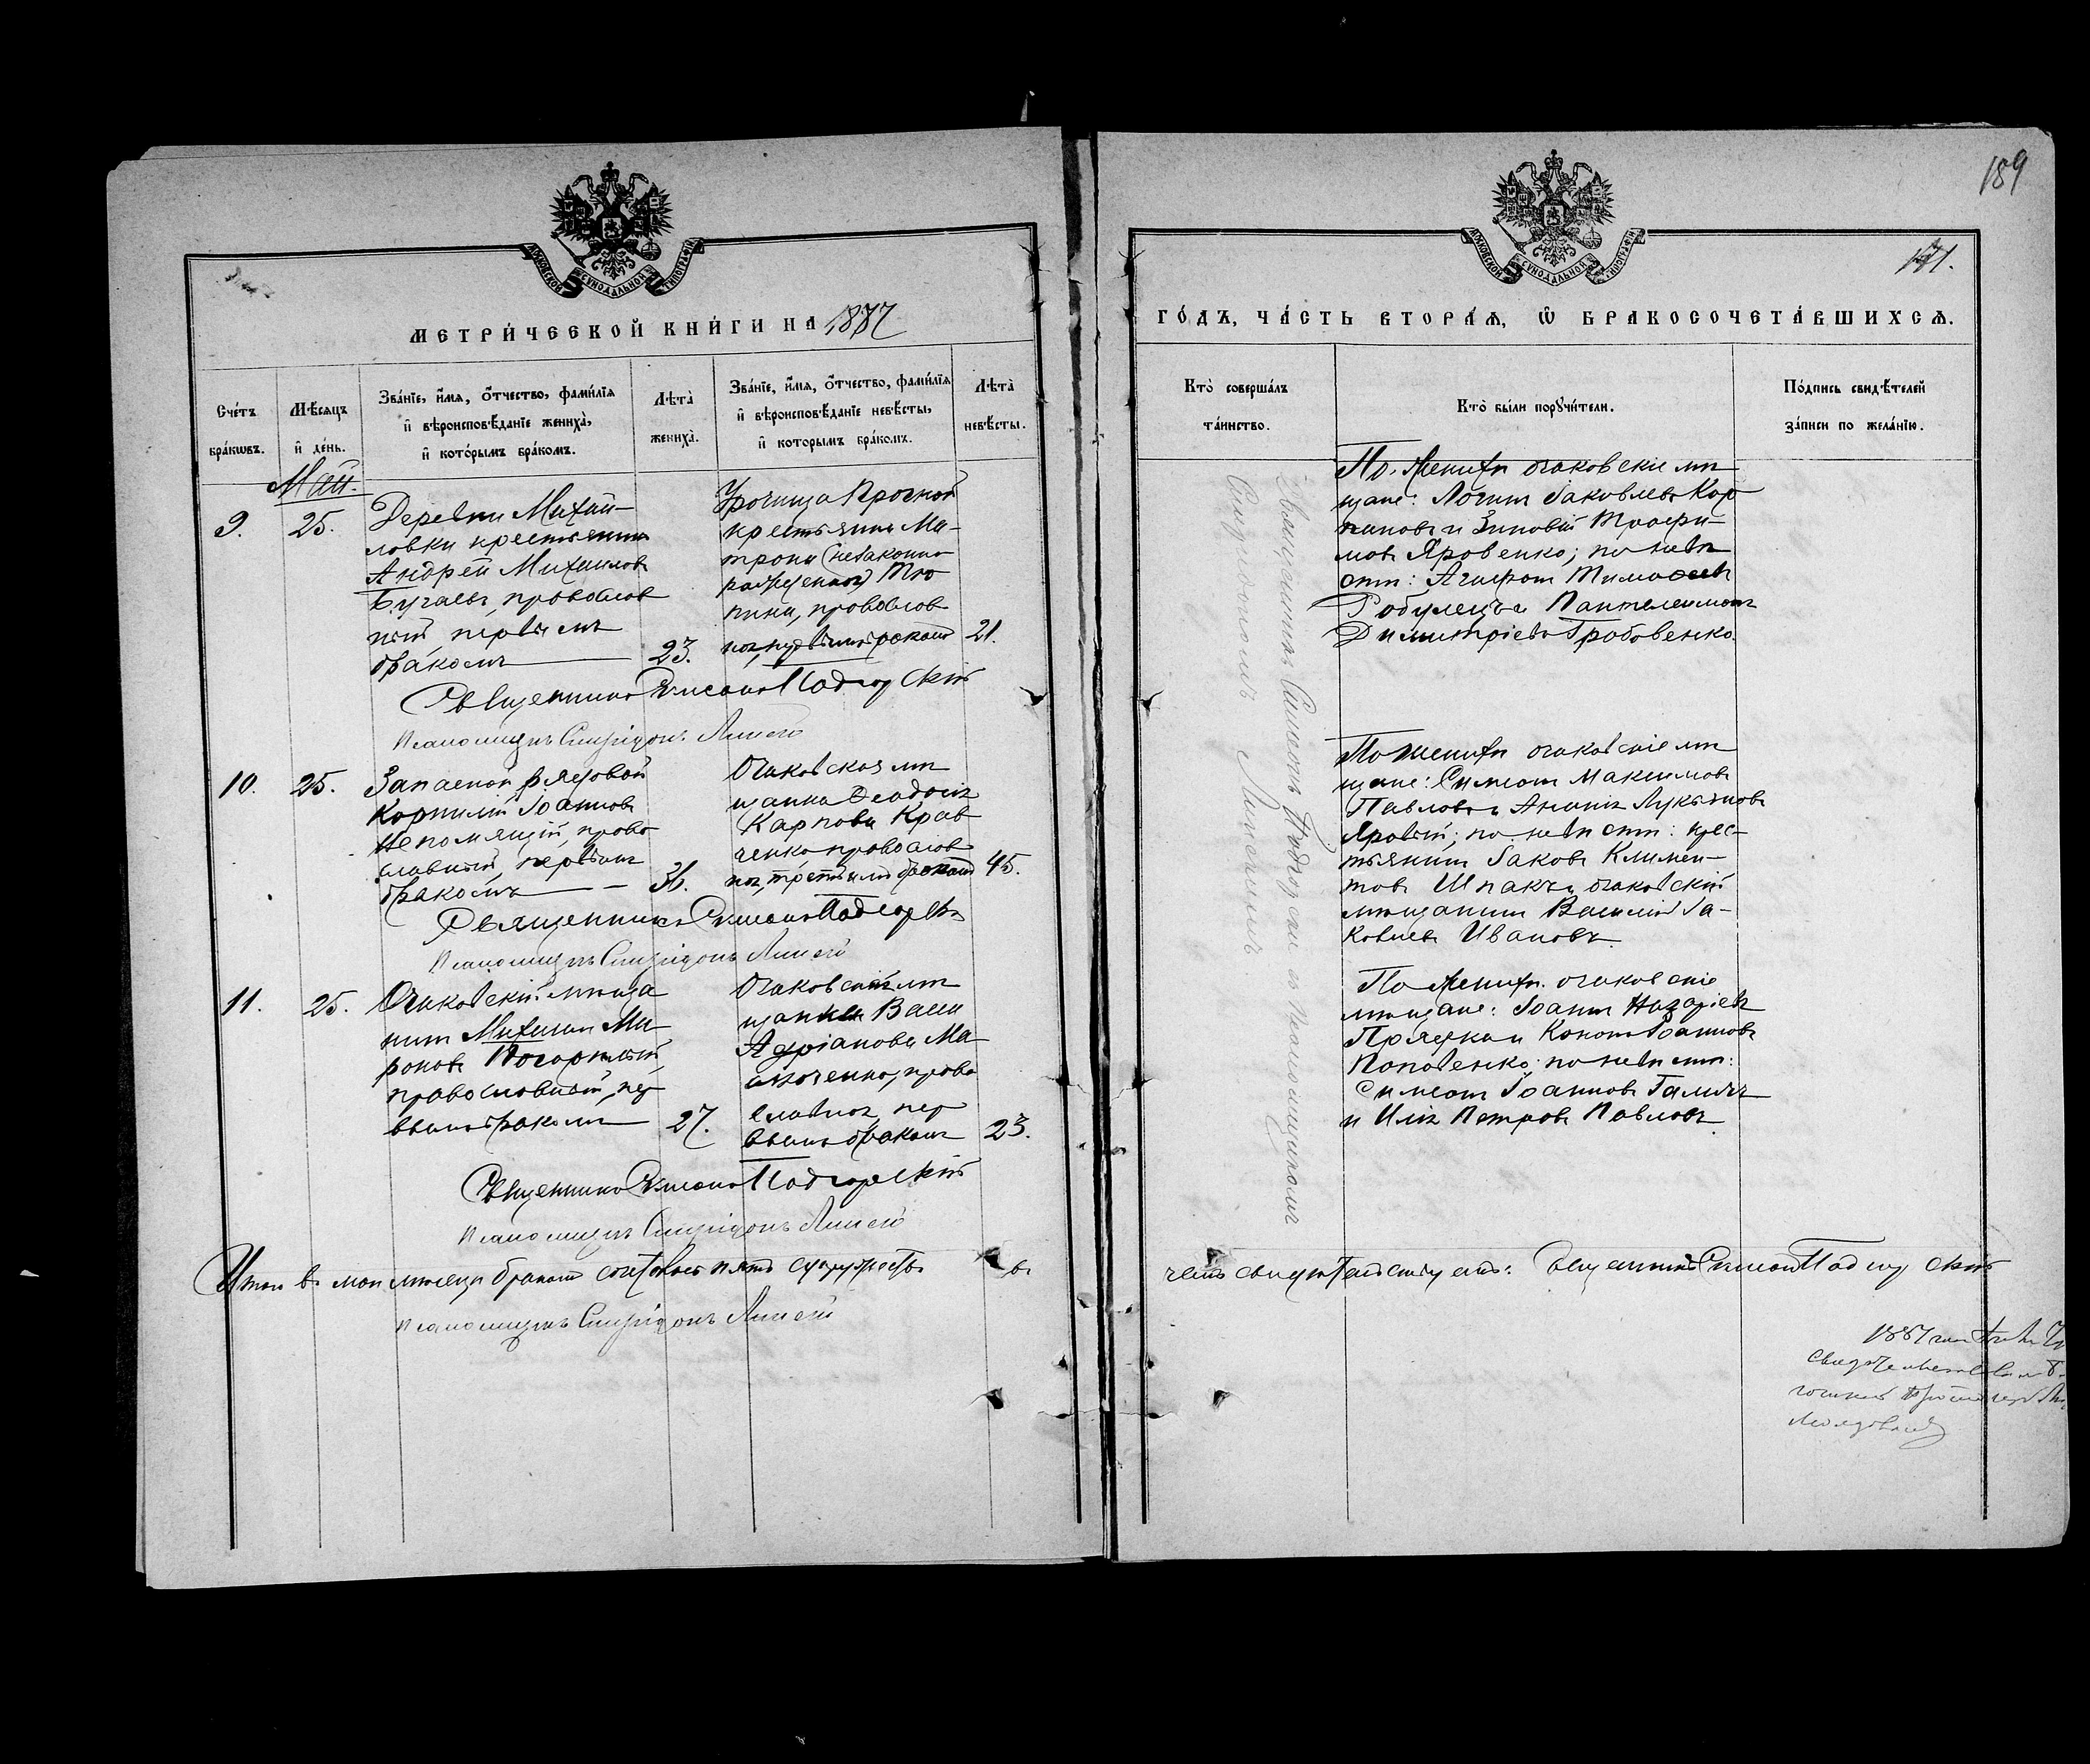 189
171.
МОСКОВСКОЙ СѴНОДАЛЬНОЙ ТИПОГРАФІИ
МОСКОВСКОЙ СѴНОДАЛЬНОЙ ТИПОГРАФІИ
МЕТРИ́ЧЕСКОЙ КНИ́ГИ НА 1887
ГО́ДЪ, ЧА́СТЬ ВТОРА́Ѧ, Ѡ҆ БРАКОСОЧЕТА́ВШИХСѦ.
Сче́тъ бра́кѡвъ.
Мѣ́сѧцъ и҆ де́нь.
Зва́нїе, и҆́мѧ, ѻ҆́тчество, фами́лїѧ
и҆ вѣроисповѣ́данїе жениха̀,
и҆ кото́рымъ бра́комъ.
Лѣта̀ жениха̀.
Зва́нїе, и҆́мѧ, ѻ҆́тчество, фами́лїѧ
и҆ вѣроисповѣ́данїе невѣ́сты,
и҆ кото́рымъ бра́комъ.
Лѣта̀ невѣ́сты.
Кто̀ соверша́лъ та́инство.
Кто̀ бы́ли порꙋчи́тели.
По́дпись свидѣ́телей за́писи по жела́нїю.
Май.
9.
25.
Деревни Михай-
ловки крестьянинъ
Андрей Михаиловъ
Бугаевъ, православ
ный, первымъ
бракомъ
23.
Урочища Прогной
крестьянка Ма-
трона (незаконно
рожденная) Тю
пина, православ
ная, первымъ бракомъ
21.
По женихѣ очаковскіе мѣ
щане: Логинъ Іаковлевъ Кар
пановъ и Зиновій Трофи-
мовъ Яровенко; по невѣ
стѣ: Агафонъ Тимофеевъ
и Пантелеимонъ
Димитріевъ Гробовенко.
Священникъ Симеонъ Подгорскій
Псаломщикъ Спиридонъ
10.
25.
Запасной рядовой
Корнилій Іоанновъ
Непомящій, право
славный, первымъ
бракомъ
36.
Очаковская мѣ
щанка Феодосія
Карпова Крав
ченко православ
ная, третьимъ бракомъ
45.
По женихѣ очаковскіе мѣ
щане: Симеонъ Максимовъ
Павловъ и Ананія Лукьяновъ
Яровый; по невѣстѣ: крес-
тьянинъ Іаковъ Климен-
товъ Шпакъ и очаковскій
мѣщанинъ Василій Іа-
ковлевъ Ивановъ.
Священникъ Симеонъ Подгорскій
Псаломщикъ Спиридонъ
11.
25.
Очаковскій мѣща
нинъ Михаилъ Ми
роновъ
православный, пер
вымъ бракомъ
27.
Очаковская мѣ
щанка Васса
Адріанова Ма
право
славная, пер
вымъ бракомъ
23.
По женихѣ очаковскіе
мѣщане: Іоаннъ Назаріевъ
Прядка и Кононъ Іоанновъ
Поповенко; по невѣстѣ:
Симеонъ Іоанновъ Галичъ
и Илія Петровъ Павловъ.
Священникъ Симеонъ Подгорскій
Псаломщикъ Спиридонъ
Священникъ Симеонъ Подгорскій съ Псаломщикомъ
Спиридономъ
Итого въ маѣ мѣсяцѣ бракомъ сочеталось пять супружествъ, въ
чемъ свидѣтельствуемъ: Священникъ Симеонъ Подгорскій
Псаломщикъ Спиридонъ
1887 года